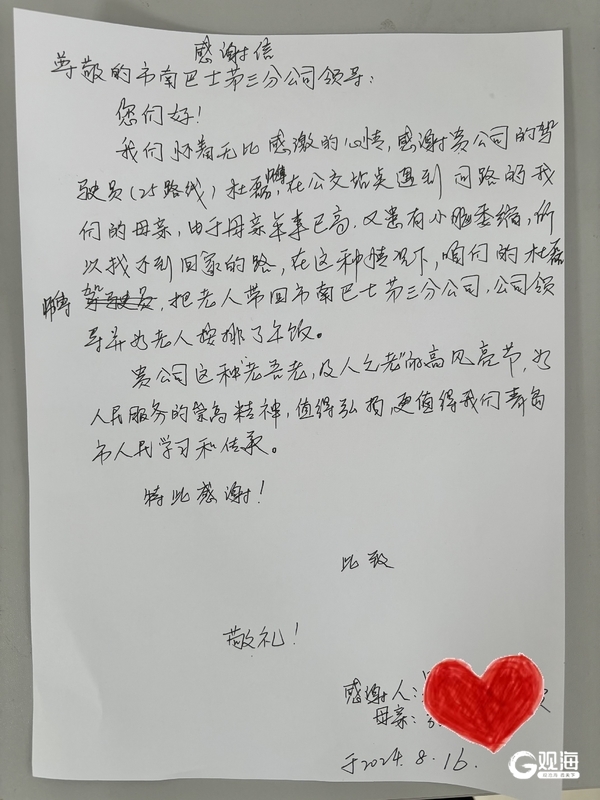 感谢信
尊敬的市南巴士第三分公司领导:
您们好!
我们怀着无比感激的心情,感谢贵公司的驾
驶员(25路线)杜磊师傅,在公交站点遇到 回路的我
们的母亲,由于母亲年事已高,又患有小脑萎缩,所
以找不到回家的路,在这种情况下,咱们的杜磊
师傅 驾驶员,把老人带回市南巴士第三分公司,公司领
导并为老人按排了午饭。
贵公司这种“老吾老,及人之老”的高风亮节,为
人民服务的崇高精神,值得弘扬,更值得我们青岛
市人民学习和传承。
特此感谢!
比致
敬礼!
感谢人:
母亲:
于2024.8.16.
观海